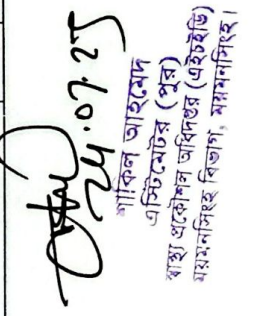 24.07.25
শাকিল আহমেদ
এস্টিমেটর (পুর)
স্বাস্থ্য প্রকৌশল অধিদপ্তর (এইচইডি)
ময়মনসিংহ বিভাগ, ময়মনসিংহ।